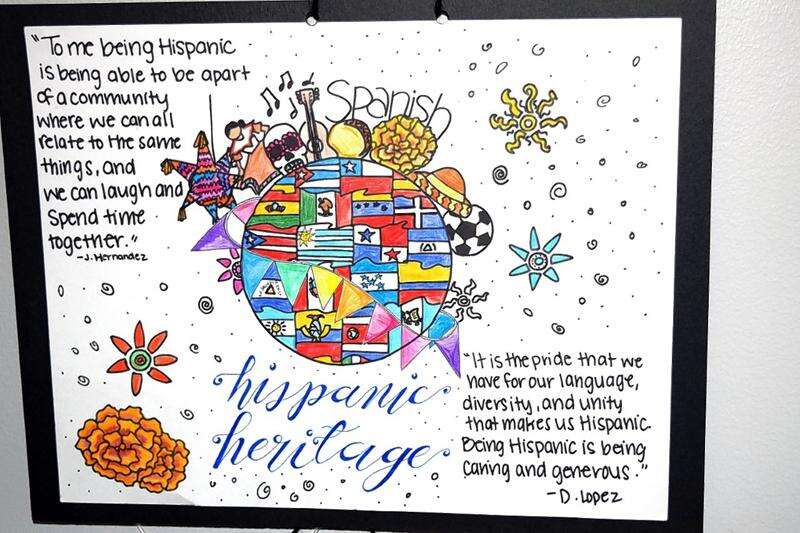 "To me being Hispanic
is being able to be apart
of a community
where we can all
relate to the same
things, and
we can laugh and
spend time
together."
-J. Hernandez
Spanish
hispanic
heritage
"It is the pride that we
have for our language,
diversity, and unity
that makes us Hispanic.
Being Hispanic is being
caring and generous."
-D. Lopez